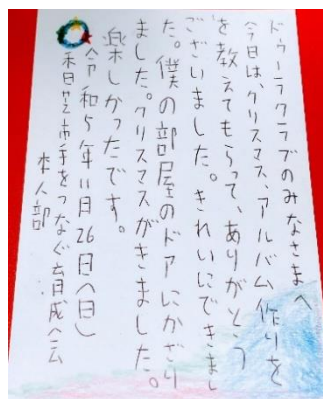 ドゥーラクラブのみなさまへ
今日は、クリスマス、アルバム作りを
を教えてもらって、ありがとう
ございました。きれいにできまし
た。僕の部屋のドアにかざり
ました。クリスマスがきました。
楽しかったです。
令和5年11月26日(日)
春日井市手をつなぐ育成会
本人部